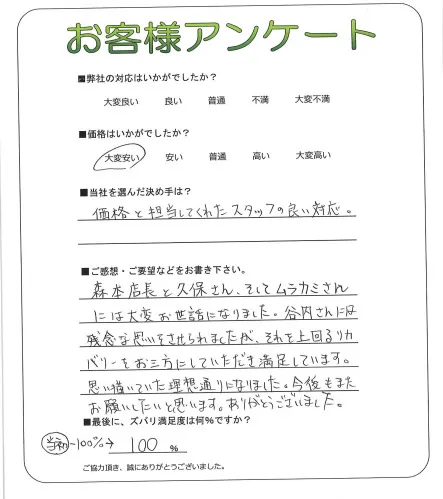 お客様アンケート
■弊社の対応はいかがでしたか？
大変良い 良い 普通 不満 大変不満
■価格はいかがでしたか？
大変安い 安い 普通 高い 大変高い
■当社を選んだ決め手は？
価格と担当してくれたスタッフの良い対応。
■ご感想・ご要望などをお書き下さい。
森本店長と久保さん、そしてムラカミさん
には大変お世話になりました。谷内さんには
残念な思いをさせられましたが、それを上回るリカ
バリーをお三方にしていただき満足しています。
思い描いていた理想通りになりました。今後もまた
お願いしたいと思います。ありがとうございました。
■最後に、ズバリ満足度は何%ですか？
当初-100%→ 100 %
ご協力頂き、誠にありがとうございました。